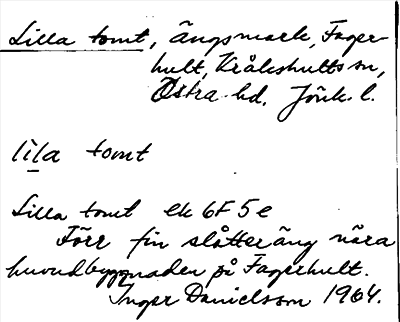 Lilla tomt, ängsmark, Fager-
hult, Kråkshults sn,
Östra hd. Jönk. l.
lila tomt
Lilla tomt ek 6F 5e
Förr fin slåtteräng nära
huvudbyggnaden på Fagerhult.
Inger Danielsson 1964.